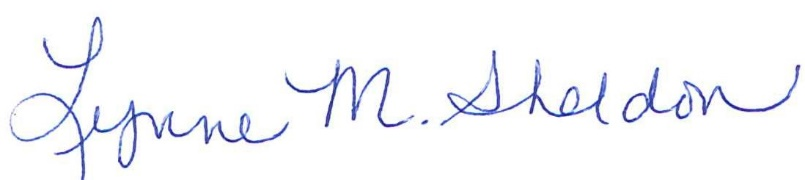 Lynne M. Sheldon